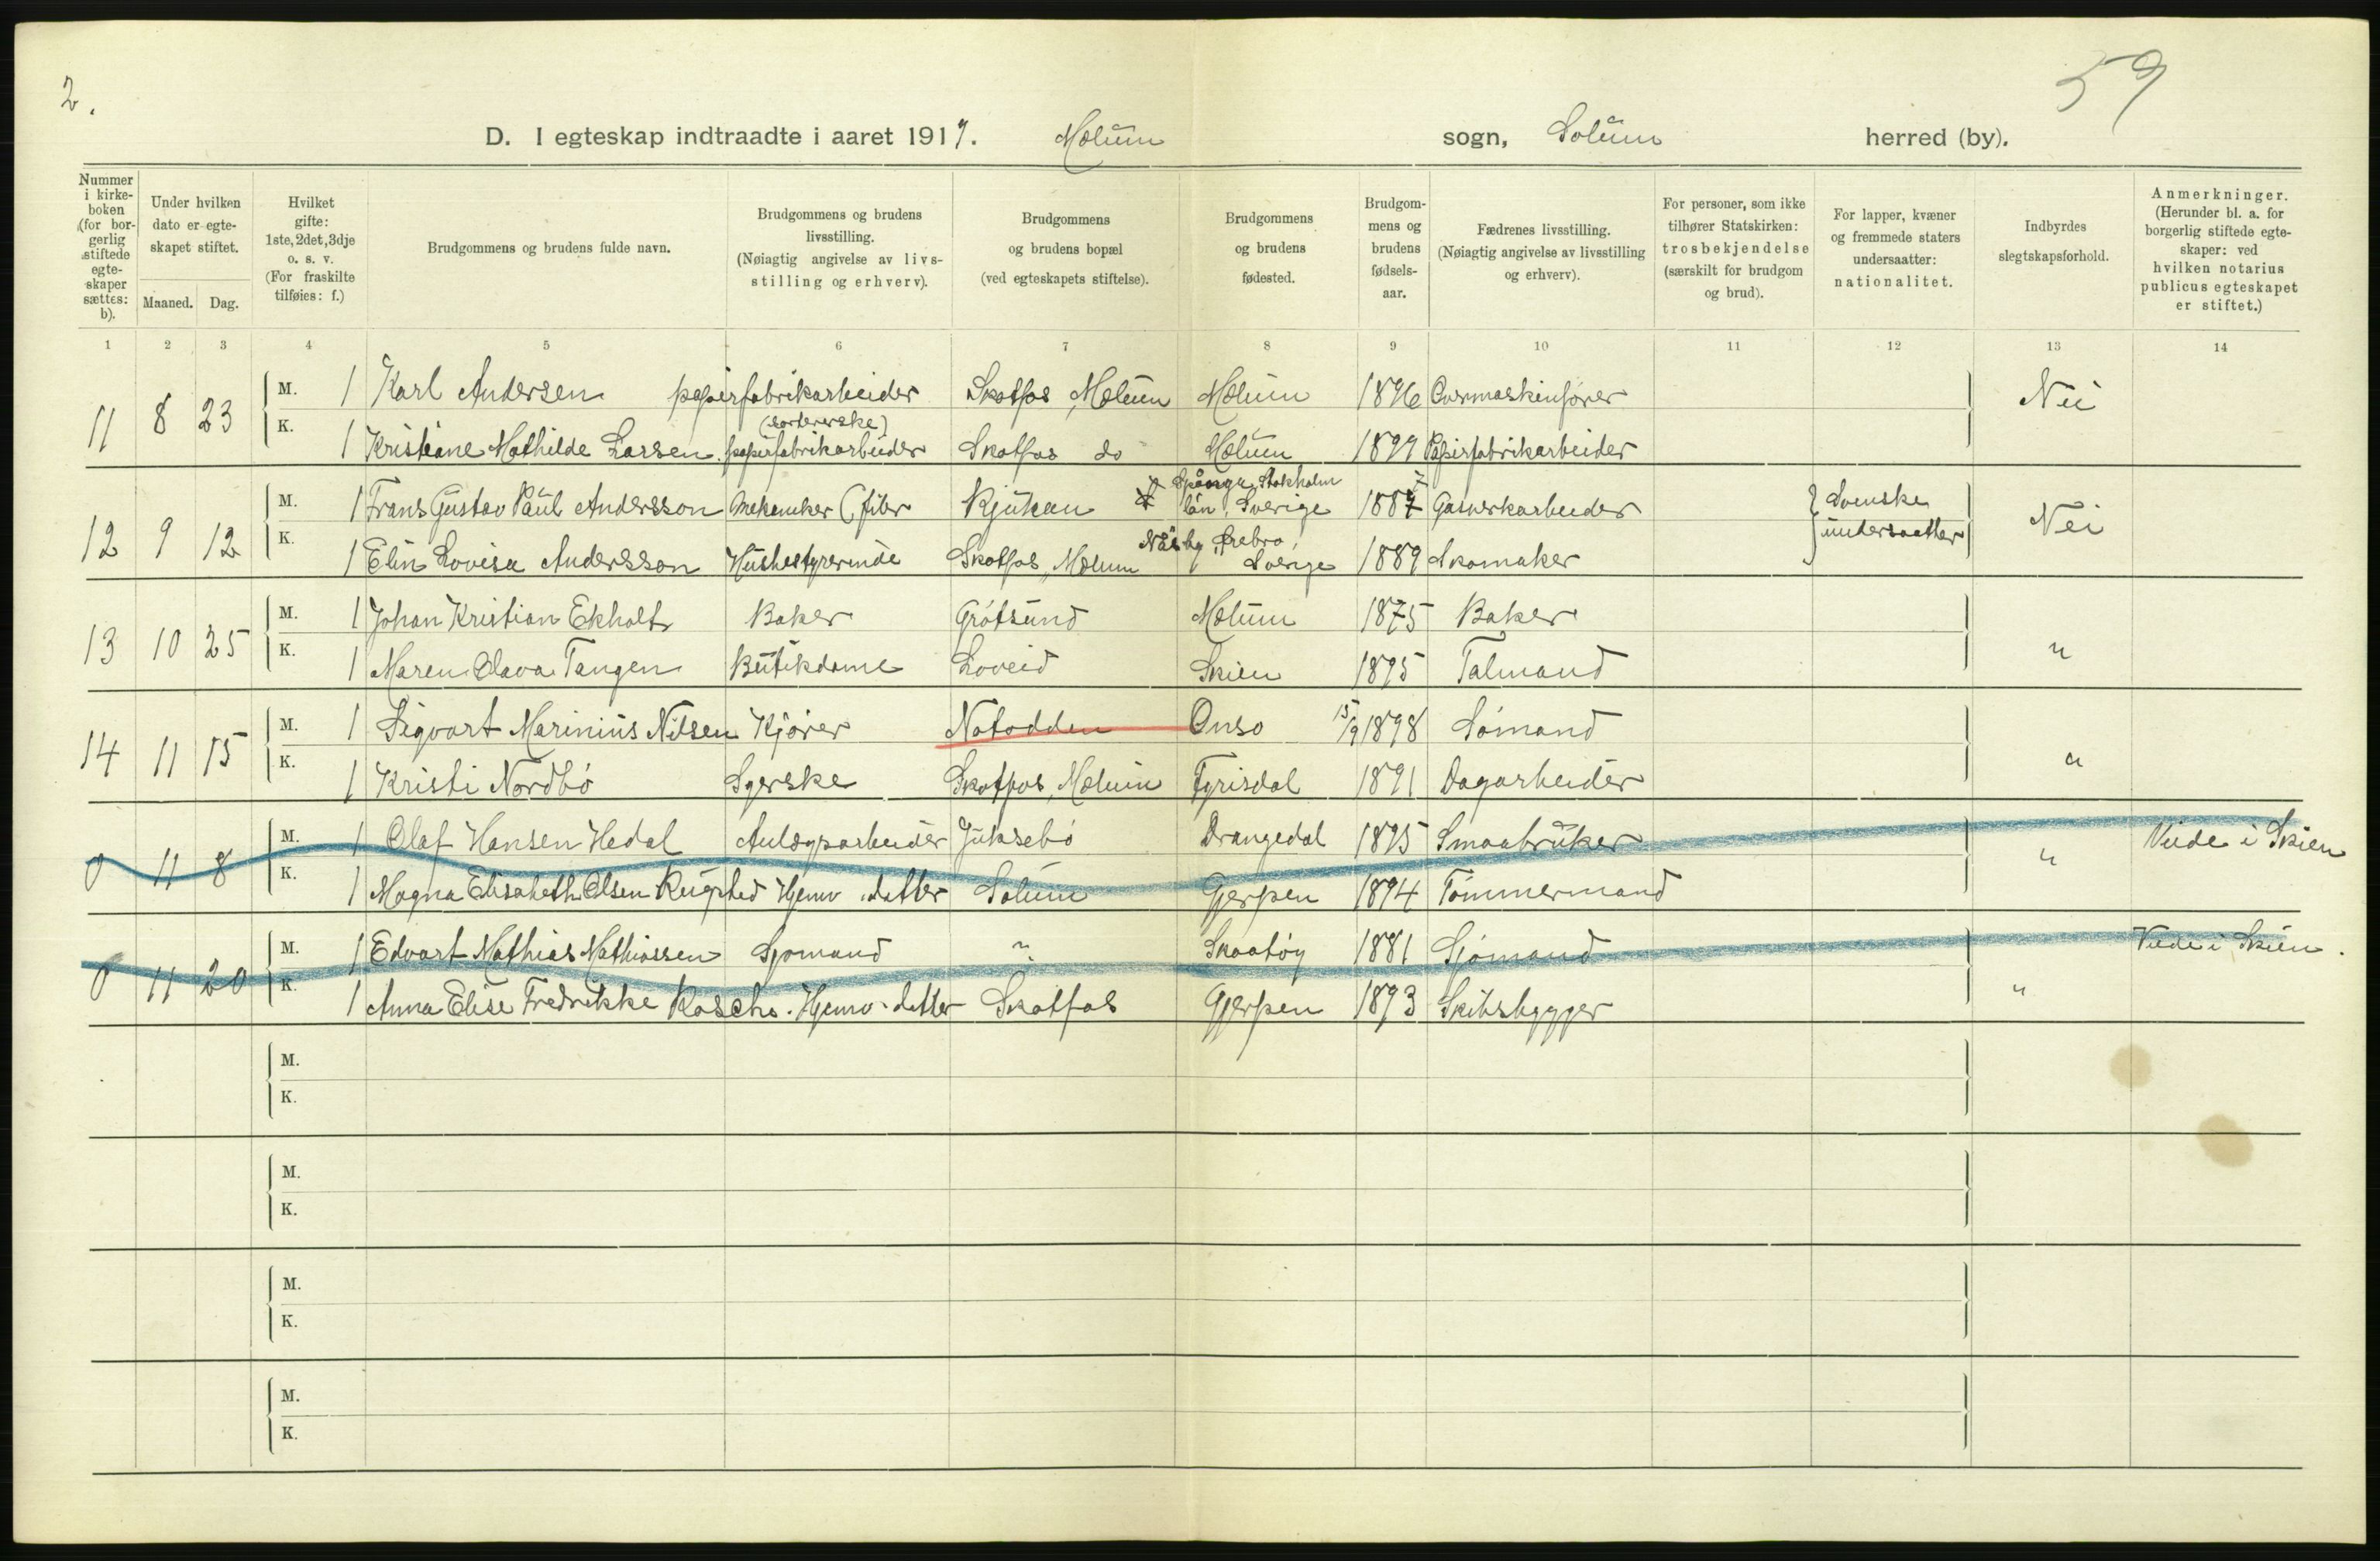 2.
59
D. I egteskap indtraadte i aaret 1919. Mælum sogn, Solum herred (by).
Nummer i kirke-boken (for bor-gerlig stiftede egte-skaper sættes: b).
Under hvilken dato er egte-skapet stiftet.
Maaned. Dag.
Hvilket gifte: 1ste, 2det, 3dje o. s. v. (For fraskilte tilføies: f.)
Brudgommens og brudens fulde navn.
Brudgommens og brudens livsstilling. (Nøiagtig angivelse av livs-stilling og erhverv).
Brudgommens og brudens bopæl (ved egteskapets stiftelse).
Brudgommens og brudens fødested.
Brudgom-mens og brudens fødsels-aar.
Fædrenes livsstilling. (Nøiagtig angivelse av livsstilling og erhverv).
For personer, som ikke tilhører Statskirken: trosbekjendelse (særskilt for brudgom og brud).
For lapper, kvæner og fremmede staters undersaatter: nationalitet.
Indbyrdes slegtskapsforhold.
Anmerkninger. (Herunder bl. a. for borgerlig stiftede egte-skaper: ved hvilken notarius publicus egteskapet er stiftet.)
1 2 3 4 5 6 7 8 9 10 11 12 13 14
11 8 23 M. 1 Karl Andersen papirfabrikarbeider Skotfos, Mælum Mælum 1896 Nei
(sortererske)
K. 1 Kristiane Mathilde Larsen papirfabrikarbeider Skotfos do Mælum 1899 Papirfabrikarbeider
12 9 12 M. 1 Frans Gustav Paul Andersson Mekaniker Rjukan Spånga, Stokholm län, Sverige 1887 Gasverkarbeider Svenske undersaatter Nei
K. 1 Elin Lovisa Andersson Husbestyrerinde Skotfos, Mælum Näsby, Örebro, Sverige 1889 Skomaker
13 10 25 M. 1 Johan Kristian Ekholt Baker Grótsund Mælum 1875 Baker "
K. 1 Maren Olava Tangen Butikdame Løveid Skien 1895 Talmand
14 11 15 M. 1 Sigvart Marinius Nilsen Kjører Notodden Onsø 15/9 1898 Sómand "
K. 1 Kristi Nordbó Syerske Skotfos, Mælum Fyrisdal 1891 Dagarbeider
0 11 8 M. 1 Olaf Hansen Hedal Anlægsarbeider Juksebó Drangedal 1895 Smaabruker " Viede i Skien
K. 1 Magna Elisabeth Olsen Rugsted Hjemv. datter Solum Gjerpen 1894 Tømmermand
0 11 20 M. 1 Edvart Mathias Mathiassen Sjømand " Skaatøy 1881 Sjómand " Viede i Skien.
K. 1 Anna Elise Fredrikke Rasch. Hjemv. datter Skotfos Gjerpen 1893 Skibsbygger
M.
K.
M.
K.
M.
K.
M.
K.